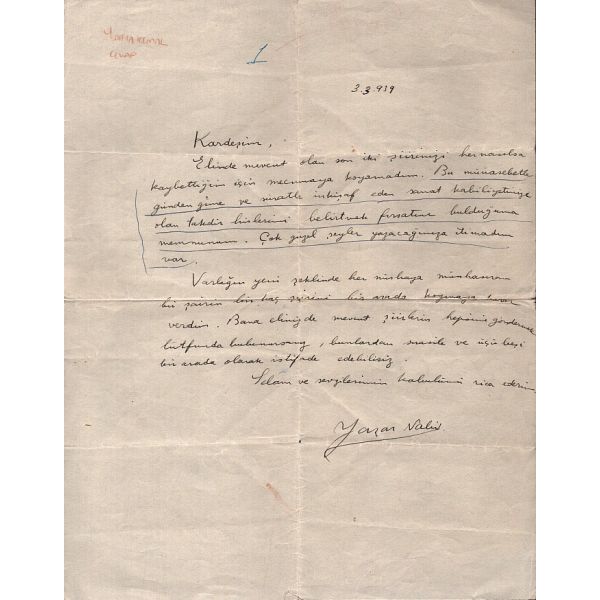 1
3.3.939
Kardeşim,
Elinde mevcut olan son iki şiirinizi her nasılsa
kaybettiğim için mecmuaya koyamadım. Bu münasebetle
günden güne ve süratle inkişaf eden sanat kabiliyetinize
olan takdir hislerimi belirtmek fırsatını bulduğuma
memnunum. Çok güzel şeyler yazacağınıza itimadım
var.
Varlığın yeni şeklinde her nüshaya münhasıran
bir şairin bir kaç şiirini bir arada koymaya karar
verdim. Bana elinizde mevcut şiirlerin hepsini göndermek
lütfunda bulunursanız, bunlardan sırasile ve üçü beşi
bir arada olarak istifade edebiliriz.
Selam ve sevgilerimin kabulünü rica ederim
Yaşar Nabi